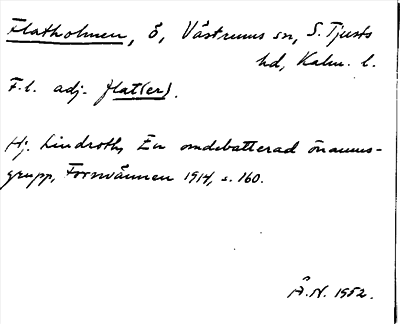 Flatholmen, ö, Västrums sn, S. Tjusts
hd, Kalm. l.
F.l. adj. flat(er).
Hj. Lindroth, En omdebatterad önamns-
grupp, Fornvännen 1914, s. 160.
Å.N. 1952.